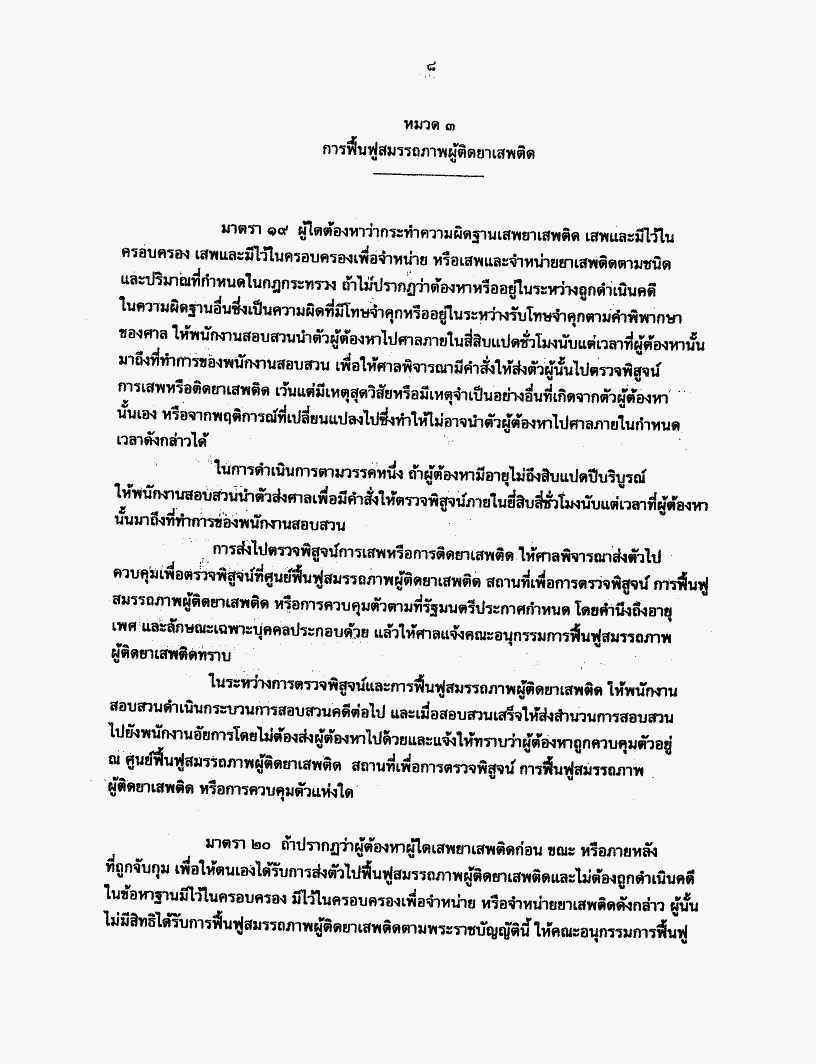 ๘
หมวด ๓
การฟื้นฟูสมรรถภาพผู้ติดยาเสพติด
มาตรา ๑๙ ผู้ใดต้องหาว่ากระทำความผิดฐานเสพยาเสพติด เสพและมีไว้ใน
ครอบครอง เสพและมีไว้ในครอบครองเพื่อจำหน่าย หรือเสพและจำหน่ายยาเสพติดตามชนิด
และปริมาณที่กำหนดในกฎกระทรวง ถ้าไม่ปรากฏว่าต้องหาหรืออยู่ในระหว่างถูกดำเนินคดี
ในความผิดฐานอื่นซึ่งเป็นความผิดที่มีโทษจำคุกหรืออยู่ในระหว่างรับโทษจำคุกตามคำพิพากษา
ของศาล ให้พนักงานสอบสวนนำตัวผู้ต้องหาไปศาลภายในสี่สิบแปดชั่วโมงนับแต่เวลาที่ผู้ต้องหานั้น
มาถึงที่ทำการของพนักงานสอบสวน เพื่อให้ศาลพิจารณามีคำสั่งให้ส่งตัวผู้นั้นไปตรวจพิสูจน์
การเสพหรือติดยาเสพติด เว้นแต่มีเหตุสุดวิสัยหรือมีเหตุจำเป็นอย่างอื่นที่เกิดจากตัวผู้ต้องหา
นั้นเอง หรือจากพฤติการณ์ที่เปลี่ยนแปลงไปซึ่งทำให้ไม่อาจนำตัวผู้ต้องหาไปศาลภายในกำหนด
เวลาดังกล่าวได้
ในการดำเนินการตามวรรคหนึ่ง ถ้าผู้ต้องหามีอายุไม่ถึงสิบแปดปีบริบูรณ์
ให้พนักงานสอบสวนนำตัวส่งศาลเพื่อมีคำสั่งให้ตรวจพิสูจน์ภายในยี่สิบสี่ชั่วโมงนับแต่เวลาที่ผู้ต้องหา
นั้นมาถึงที่ทำการของพนักงานสอบสวน
การส่งไปตรวจพิสูจน์การเสพหรือการติดยาเสพติด ให้ศาลพิจารณาส่งตัวไป
ควบคุมเพื่อตรวจพิสูจน์ที่ศูนย์ฟื้นฟูสมรรถภาพผู้ติดยาเสพติด สถานที่เพื่อการตรวจพิสูจน์ การฟื้นฟู
สมรรถภาพผู้ติดยาเสพติด หรือการควบคุมตัวตามที่รัฐมนตรีประกาศกำหนด โดยคำนึงถึงอายุ
เพศ และลักษณะเฉพาะบุคคลประกอบด้วย แล้วให้ศาลแจ้งคณะอนุกรรมการฟื้นฟูสมรรถภาพ
ผู้ติดยาเสพติดทราบ
ในระหว่างการตรวจพิสูจน์และการฟื้นฟูสมรรถภาพผู้ติดยาเสพติด ให้พนักงาน
สอบสวนดำเนินกระบวนการสอบสวนคดีต่อไป และเมื่อสอบสวนเสร็จให้ส่งสำนวนการสอบสวน
ไปยังพนักงานอัยการโดยไม่ต้องส่งผู้ต้องหาไปด้วยและแจ้งให้ทราบว่าผู้ต้องหาถูกควบคุมตัวอยู่
ณ ศูนย์ฟื้นฟูสมรรถภาพผู้ติดยาเสพติด สถานที่เพื่อการตรวจพิสูจน์ การฟื้นฟูสมรรถภาพ
ผู้ติดยาเสพติด หรือการควบคุมตัวแห่งใด
มาตรา ๒๐ ถ้าปรากฏว่าผู้ต้องหาผู้ใดเสพยาเสพติดก่อน ขณะ หรือภายหลัง
ที่ถูกจับกุม เพื่อให้ตนเองได้รับการส่งตัวไปฟื้นฟูสมรรถภาพผู้ติดยาเสพติดและไม่ต้องถูกดำเนินคดี
ในข้อหาฐานมีไว้ในครอบครอง มีไว้ในครอบครองเพื่อจำหน่าย หรือจำหน่ายยาเสพติดดังกล่าว ผู้นั้น
ไม่มีสิทธิได้รับการฟื้นฟูสมรรถภาพผู้ติดยาเสพติดตามพระราชบัญญัตินี้ ให้คณะอนุกรรมการฟื้นฟู